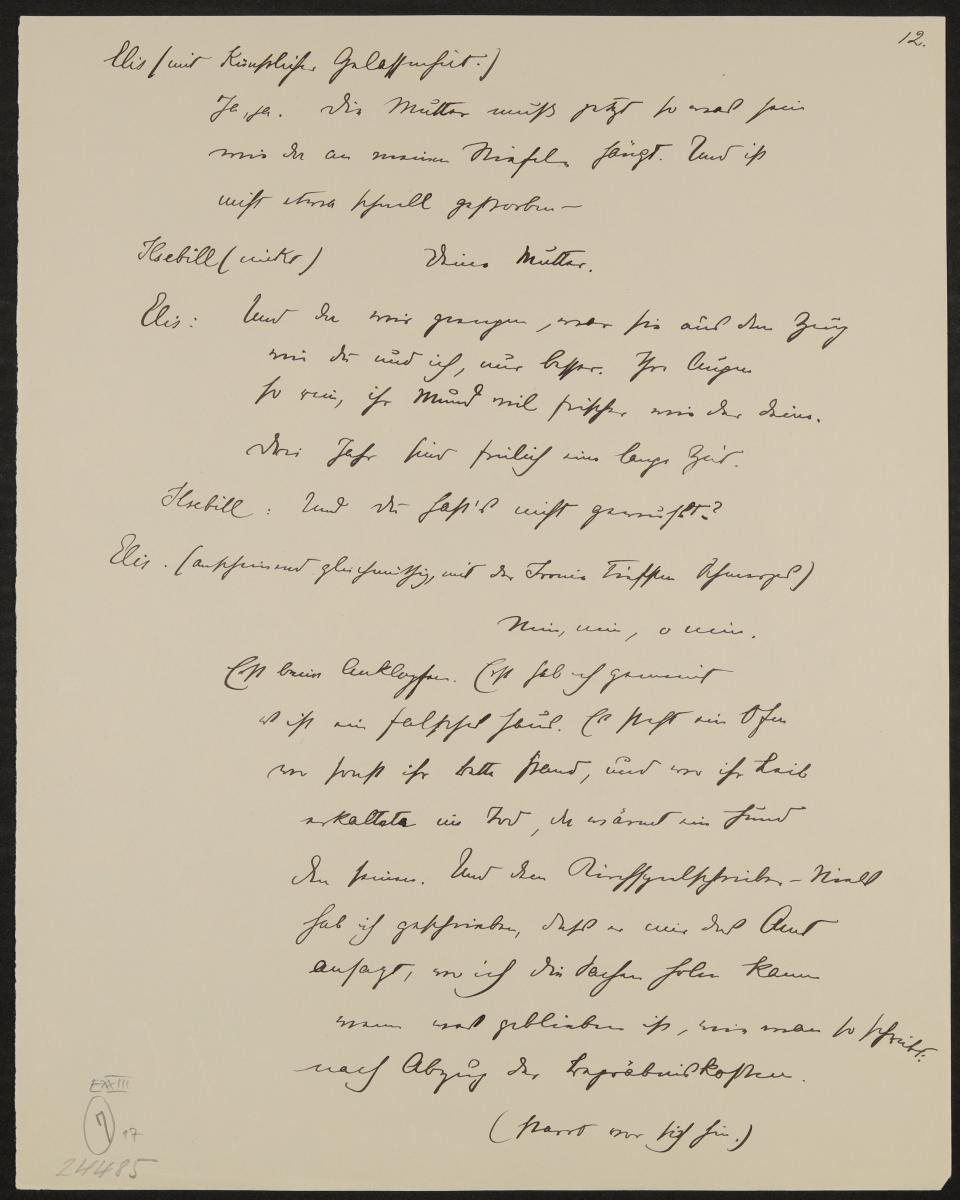 12.
Elis (mit künstlicher Gelassenheit.)
Ja, ja. Die Mutter muß jetzt so was sein
wie der an meinen Stiefeln hängt. Und ist
nicht etwa schnell gestorben –
Ilsebill (nickt) Deine Mutter.
Elis: Und da wir gangen, war sie aus dem Zeug
wie du und ich, nur besser. Ihre Augen
so rein, ihr Mund viel frischer wie der deine.
Drei Jahr sind freilich eine lange Zeit.
Ilsebill: Und du hast's nicht gewußt?
Elis. (anscheinend gleichmüthig, mit der Ironie tiefsten Schmerzes)
Nein, nein, o nein.
Erst beim Anklopfen. Erst hab ich gemeint
es ist ein falsches Haus. Es steht ein Ofen
wo sonst ihr Bette stand, und wo ihr Leib
erkaltete im Tod, da wärmt ein Hund
den seinen. Und dem Kirchspielschreiber Niels
hab ich geschrieben, daß er mir das Amt
ansagt, wo ich die Sachen holen kann
wenn was geblieben ist, wie man so schreibt:
nach Abzug der Begräbniskosten.
(starrt vor sich hin.)
EXXIII
7
17
24485